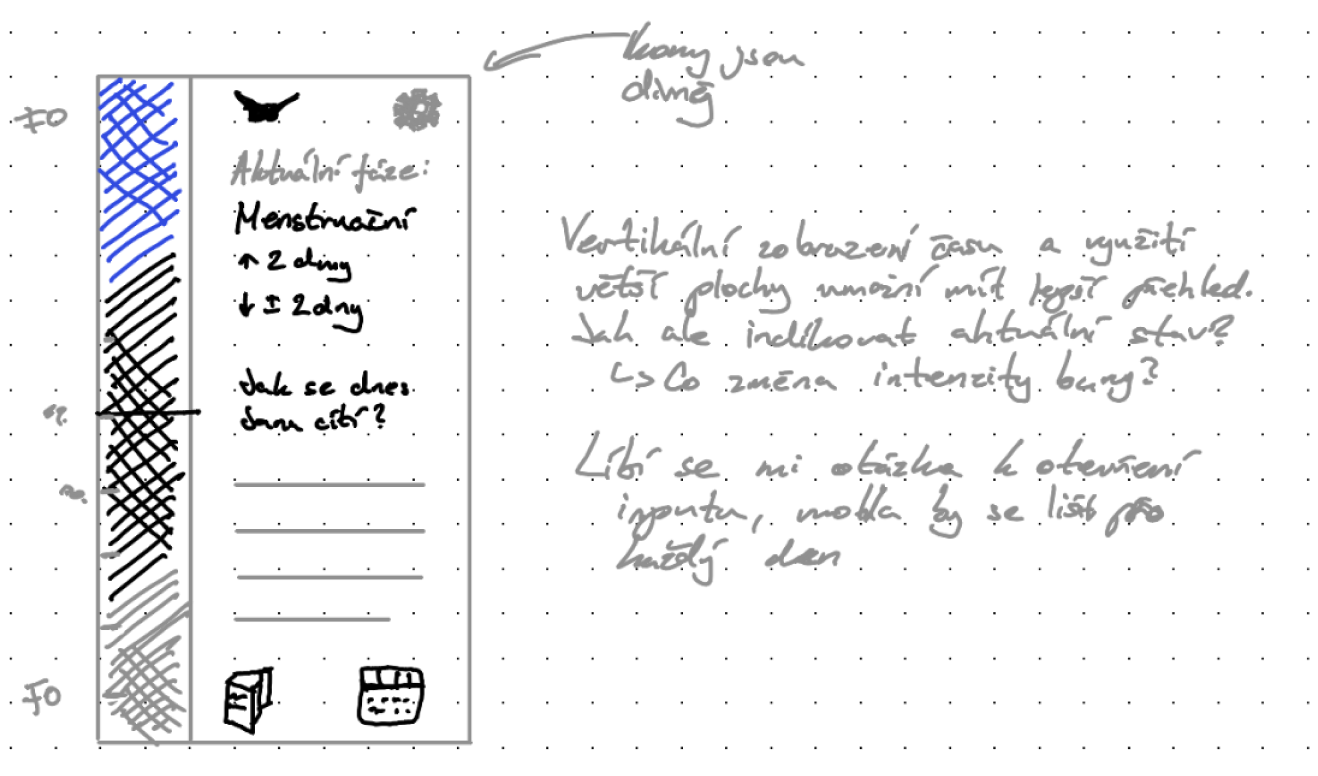 Ikony jsou
divné
FO
Aktuální fáze:
Menstruační
↑ 2 dny
↓ ± 2 dny
Jak se dnes
Jana cítí?
FO
Vertikální zobrazení času a využití
větší plochy umožní mít lepší přehled.
Jak ale indikovat aktuální stav?
↳ Co změna intenzity barvy?
Líbí se mi otázka k otevření
inputu, mohla by se lišit pro
každý den